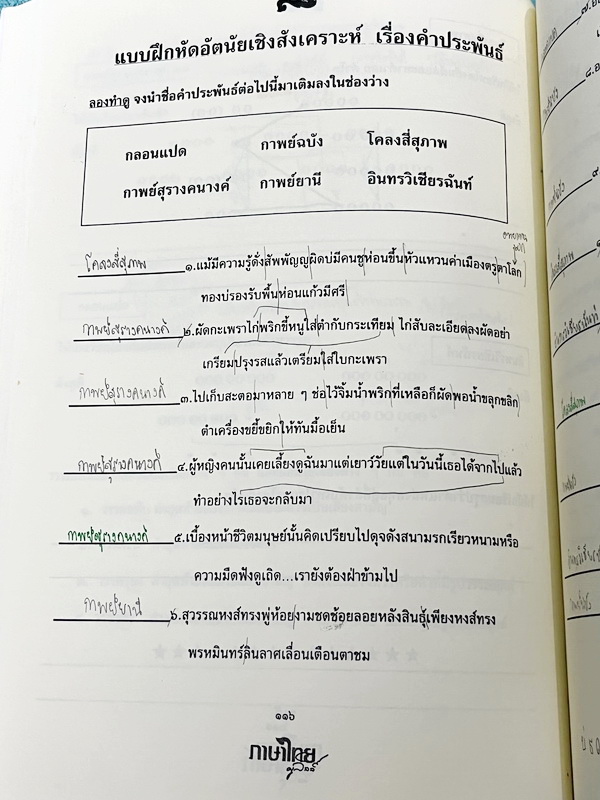 แบบฝึกหัดอัตนัยเชิงสังเคราะห์ เรื่องคำประพันธ์
ลองทำดู จงนำชื่อคำประพันธ์ต่อไปนี้มาเติมลงในช่องว่าง
กลอนแปด กาพย์ฉบัง โคลงสี่สุภาพ
กาพย์สุรางคนางค์ กาพย์ยานี อินทรวิเชียรฉันท์
โคลงสี่สุภาพ ๑.แม้มีความรู้ดั่งสัพพัญญูผิดบ่มีคนชูห่อนขึ้นหัวแหวนค่าเมืองตรูตาโลก
ทองบ่รองรับพื้นห่อนแก้วมีศรี
กาพย์สุรางคนางค์ ๒.ผัดกะเพราไก่พริกขี้หนูใส่ตำกับกระเทียม ไก่สับละเอียดลงผัดอย่า
เกรียมปรุงรสแล้วเตรียมใส่ใบกะเพรา
กาพย์สุรางคนางค์ ๓.ไปเก็บสะตอมาหลาย ๆ ช่อไว้จิ้มน้ำพริกที่เหลือก็ผัดพอน้ำขลุกขลิก
ตำเครื่องขยี้ขยิกให้ทันมื้อเย็น
กาพย์สุรางคนางค์ ๔.ผู้หญิงคนนั้นเคยเลี้ยงดูฉันมาแต่เยาว์วัยแต่ในวันนี้เธอได้จากไปแล้ว
ทำอย่างไรเธอจะกลับมา
กาพย์สุรางคนางค์ ๕.เบื้องหน้าชีวิตมนุษย์นั้นคิดเปรียบไปดุจดังสนามรกเรียวหนามหรือ
ความมืดฟังดูเถิด...เรายังต้องฝ่าข้ามไป
กาพย์ยานี ๖.สุวรรณหงส์ทรงพู่ห้อยงามชดช้อยลอยหลังสินธุ์เพียงหงส์ทรง
พรหมินทร์ลินลาศเลื่อนเตือนตาชม
๑๑๖
ภาษาไทย